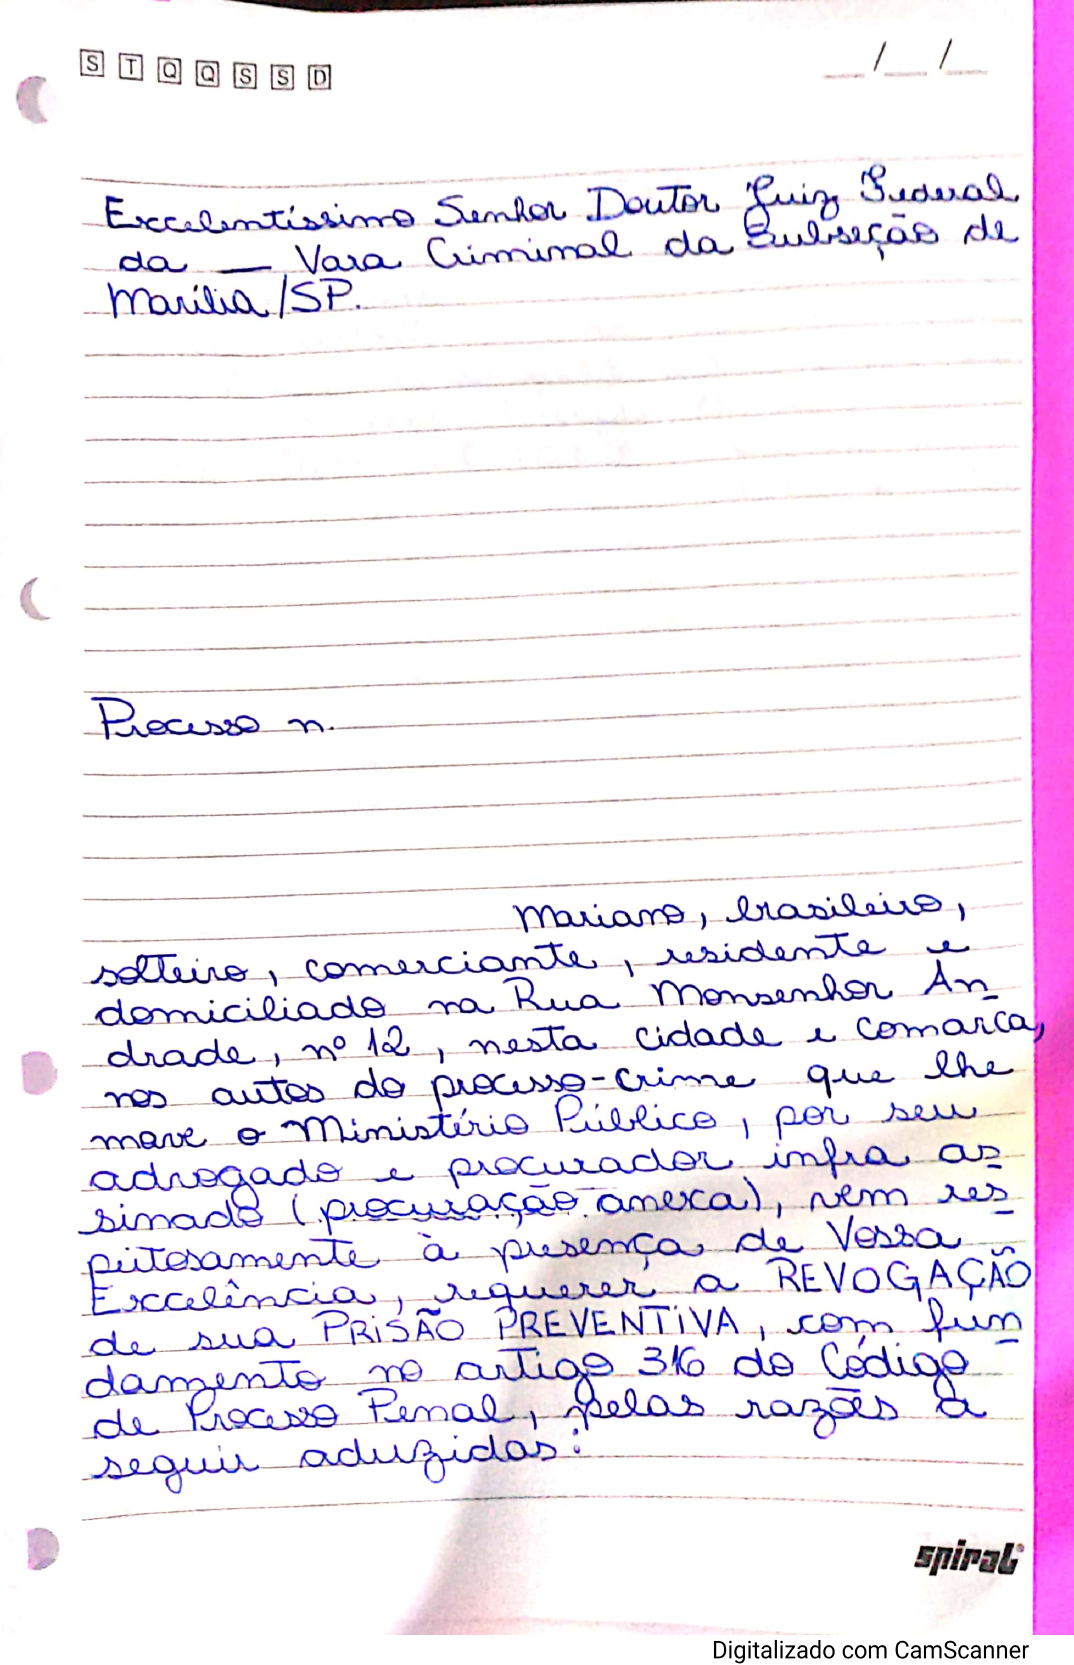 S T Q Q S S D
__/__/__
Excelentíssimo Senhor Doutor Juiz Federal
da __ Vara Criminal da Subseção de
Marília/SP.
Processo n.
Mariano, brasileiro,
solteiro, comerciante, residente e
domiciliado na Rua Monsenhor An-
drade, nº 12, nesta cidade e comarca,
nos autos do processo-crime que lhe
move o Ministério Público, por seu
advogado e procurador infra as-
sinado (procuração anexa), vem res-
peitosamente à presença de Vossa
Excelência, requerer a REVOGAÇÃO
de sua PRISÃO PREVENTIVA, com fun-
damento no artigo 316 do Código
de Processo Penal, pelas razões a
seguir aduzidas:
spiral
Digitalizado com CamScanner